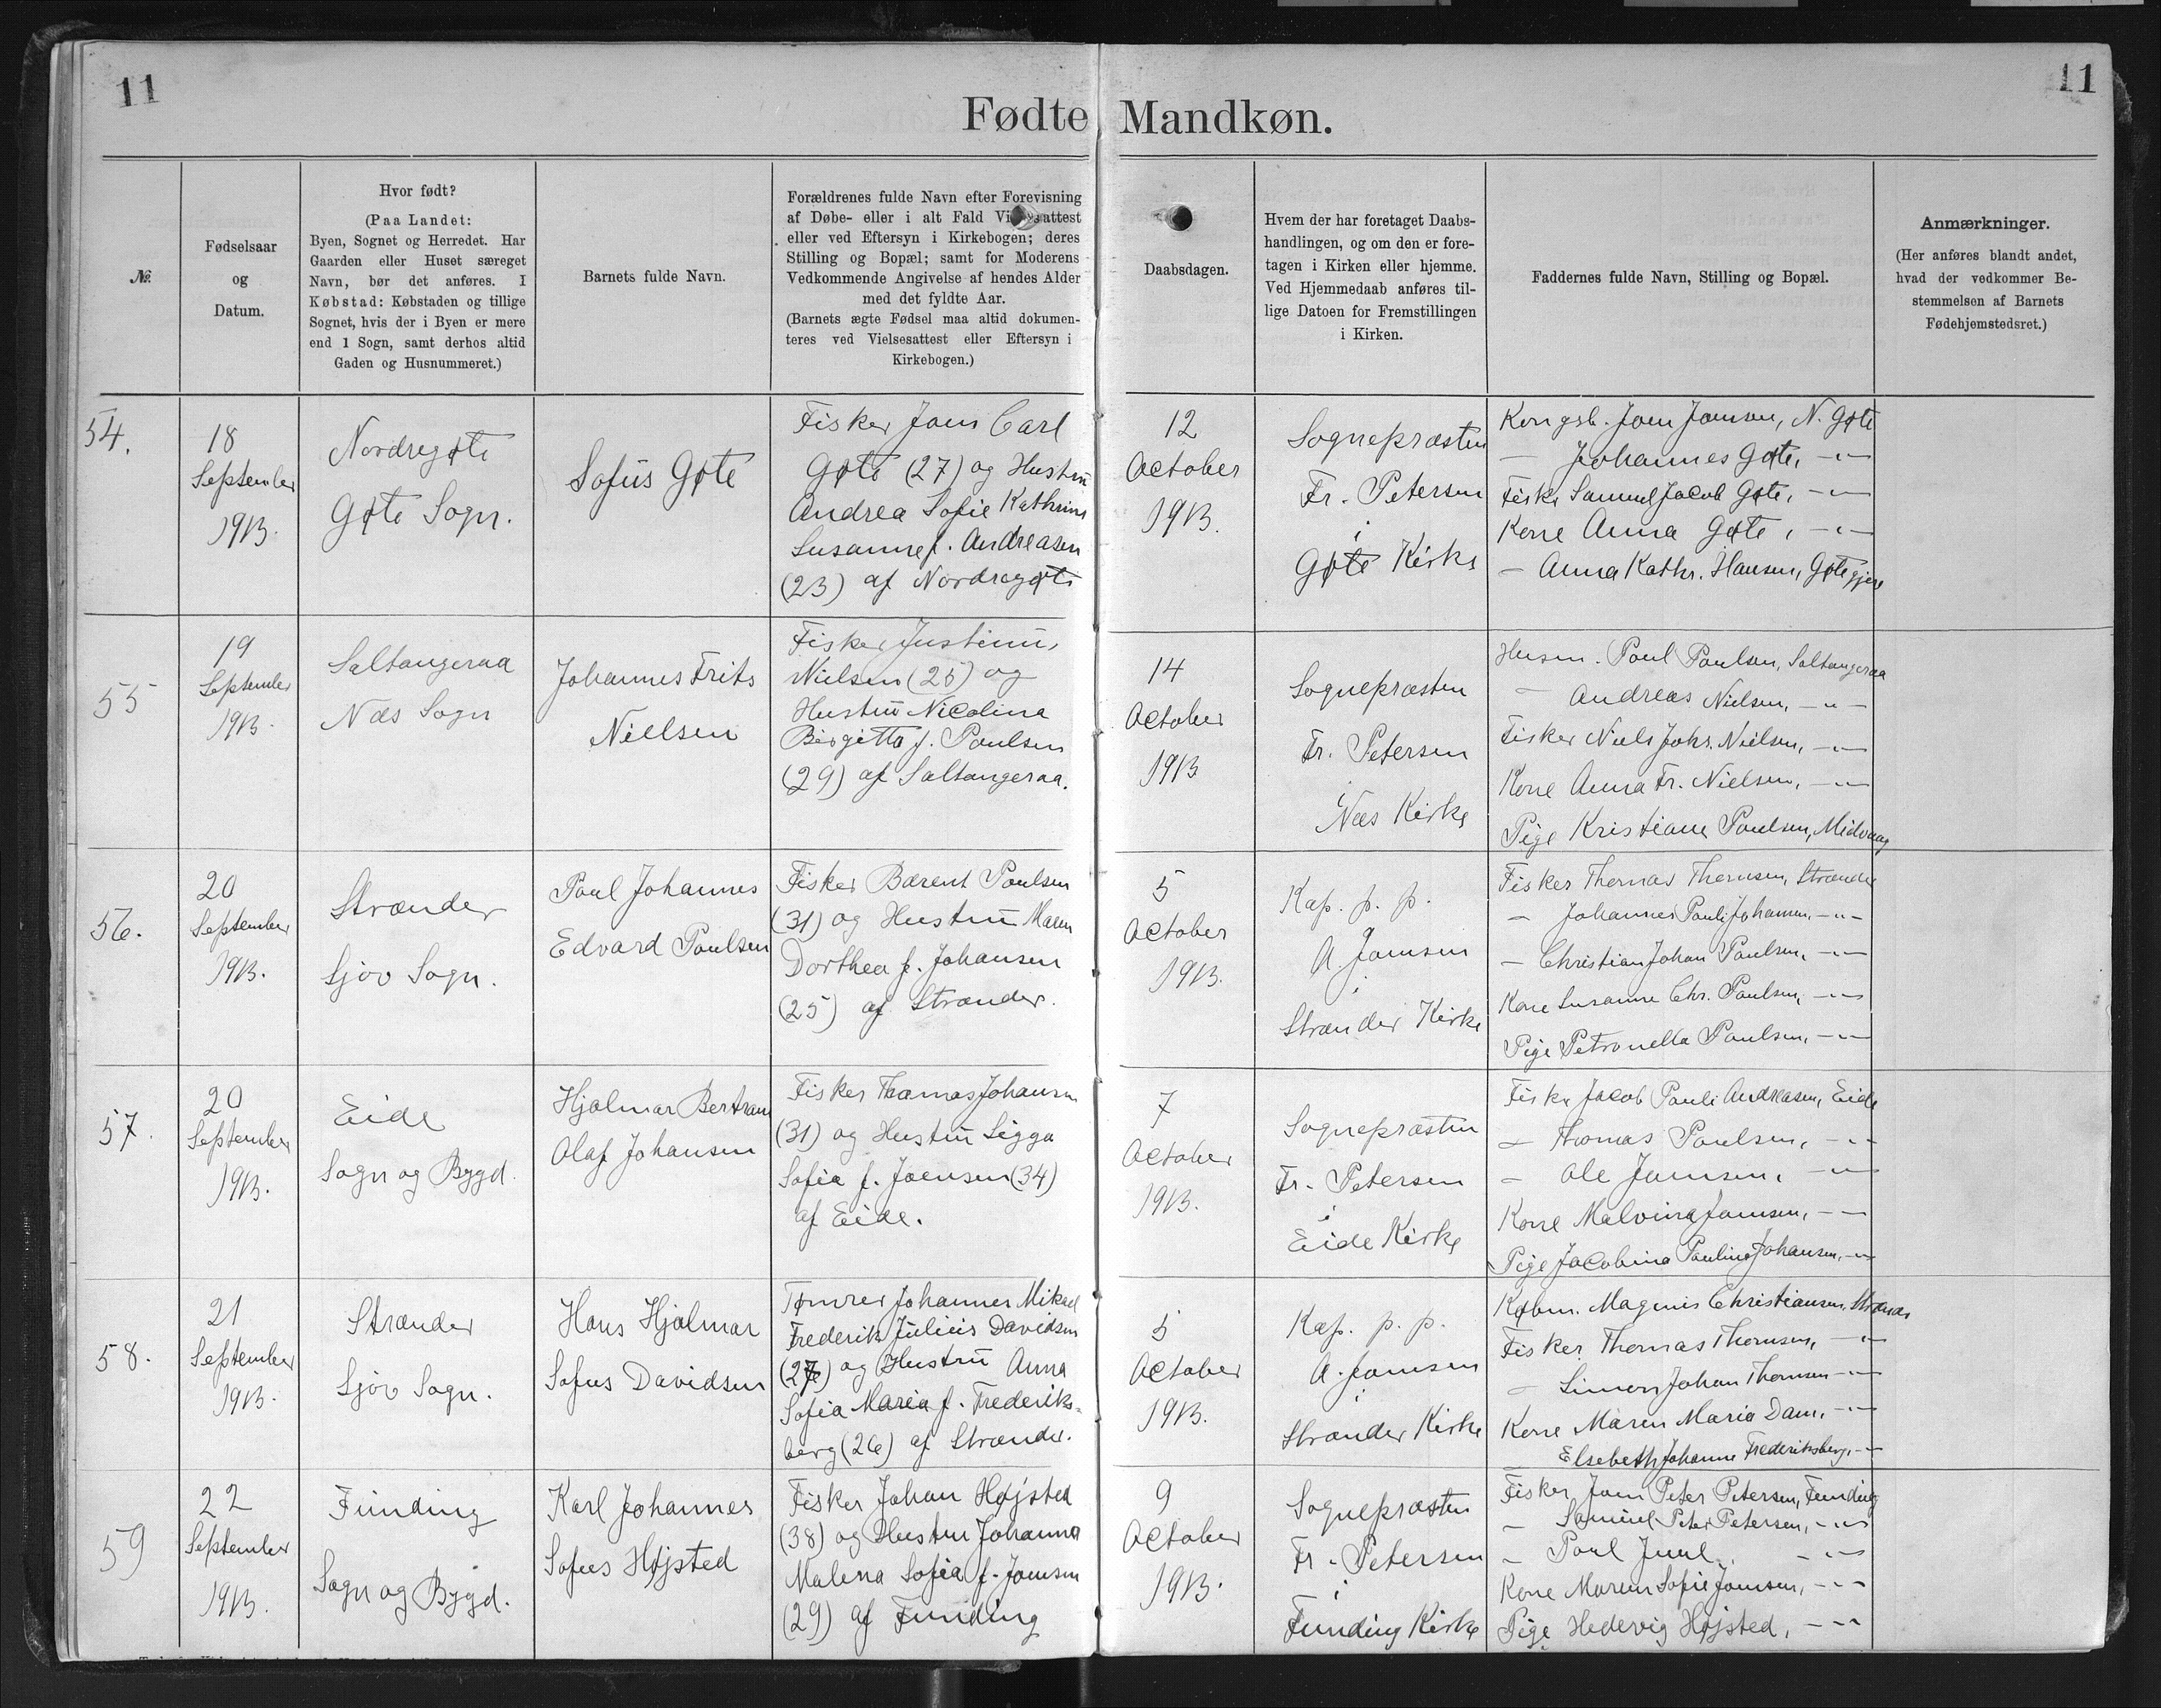 11
11
Fødte Mandkøn.
№
Fødselsaar
og
Datum.
Hvor født?
(Paa Landet:
Byen, Sognet og Herredet. Har
Gaarden eller Huset særeget
Navn, bør det anføres. I
Købstad: Købstaden og tillige
Sognet, hvis der i Byen er mere
end 1 Sogn, samt derhos altid
Gaden og Husnummeret.)
Barnets fulde Navn.
Forældrenes fulde Navn efter Forevisning
af Døbe- eller i alt Fald Vielsesattest
eller ved Eftersyn i Kirkebogen; deres
Stilling og Bopæl; samt for Moderens
Vedkommende Angivelse af hendes Alder
med det fyldte Aar.
(Barnets ægte Fødsel maa altid dokumen-
teres ved Vielsesattest eller Eftersyn i
Kirkebogen.)
Daabsdagen.
Hvem der har foretaget Daabs-
handlingen, og om den er fore-
tagen i Kirken eller hjemme.
Ved Hjemmedaab anføres til-
lige Datoen for Fremstillingen
i Kirken.
Faddernes fulde Navn, Stilling og Bopæl.
Anmærkninger.
(Her anføres blandt andet,
hvad der vedkommer Be-
stemmelsen af Barnets
Fødehjemstedsret.)
54.
18
September
1913.
Nordregøte
Gøte Sogn.
Sofus Gøte
Fisker Joen Carl
Gøte (27) og Hustru
Andrea Sofie Kathrine
Susanne f. Andreasen
(23) af Nordregøte
12
October
1913.
Sognepræsten
Fr. Petersen
i
Gøte Kirke
Kongsb. Joen Joensen, N. Gøte
— Johannes Gøte, -"-
Fisker Samuel Jacob Gøte, -"-
Kone Anna Gøte, -"-
— Anna Kathr. Hansen, Gøtegjere
55
19
September
1913.
Saltangeraa
Næs Sogn
Johannes Frits
Nielsen
Fisker Justinus
Nielsen (25) og
Hustru Nicolina
Birgitta f. Poulsen
(29) af Saltangeraa.
14
October
1913
Sognepræsten
Fr. Petersen
i
Næs Kirke
Husm. Poul Poulsen, Saltangeraa
— Andreas Nielsen, -"-
Fisker Niels Johs. Nielsen, -"-
Kone Anna Fr. Nielsen, -"-
Pige Kristiane Poulsen, Midvaag
56.
20
September
1913.
Strænder
Sjov Sogn.
Poul Johannes
Edvard Poulsen
Fisker Bærent Poulsen
(31) og Hustru Maren
Dorthea f. Johansen
(25) af Strænder.
5
October
1913.
Kap. p. p.
A. Joensen
i
Strænder Kirke
Fisker Thomas Thomsen, Strænder
— Johannes Pauli Johansen, -"-
— Christian Johan Poulsen, -"-
Kone Susanne Chr. Poulsen, -"-
Pige Petronella Poulsen, -"-
57.
20
September
1913.
Eide
Sogn og Bygd.
Hjalmar Bertram
Olaf Johansen
Fisker Thomas Johansen
(31) og Hustru Sigga
Sofia f. Joensen (34)
af Eide.
7
October
1913.
Sognepræsten
Fr. Petersen
i
Eide Kirke
Fisker Jacob Pauli Andreasen, Eide
— Thomas Poulsen, -"-
— Ole Joensen, -"-
Kone Malvina Joensen, -"-
Pige Jacobina Paulina Johansen, -"-
58.
21
September
1913.
Strænder
Sjov Sogn.
Hans Hjalmar
Sofus Davidsen
Tømrer Johannes Mikael
Frederik Julius Davidsen
(27) og Hustru Anna
Sofia Maria f. Frederiks-
berg (26) af Strænder.
5
October
1913.
Kap. p. p.
A. Joensen
i
Strænder Kirke
Købm. Magnus Christiansen, Strænder
Fisker Thomas Thomsen, -"-
— Simon Johan Thomsen -"-
Kone Maren Maria Dam, -"-
Elsebeth Johanne Frederiksberg, -"-
59
22
September
1913.
Funding
Sogn og Bygd.
Karl Johannes
Sofus Højsted
Fisker Johan Højsted
(38) og Hustru Johanna
Malena Sofia f. Joensen
(29) af Funding
9
October
1913.
Sognepræsten
Fr. Petersen
i
Funding Kirke
Fisker Joen Peter Petersen, Funding
— Samuel Peter Petersen, -"-
— Poul Juul, -"-
Kone Maren Sofie Joensen, -"-
Pige Hedevig Højsted, -"-